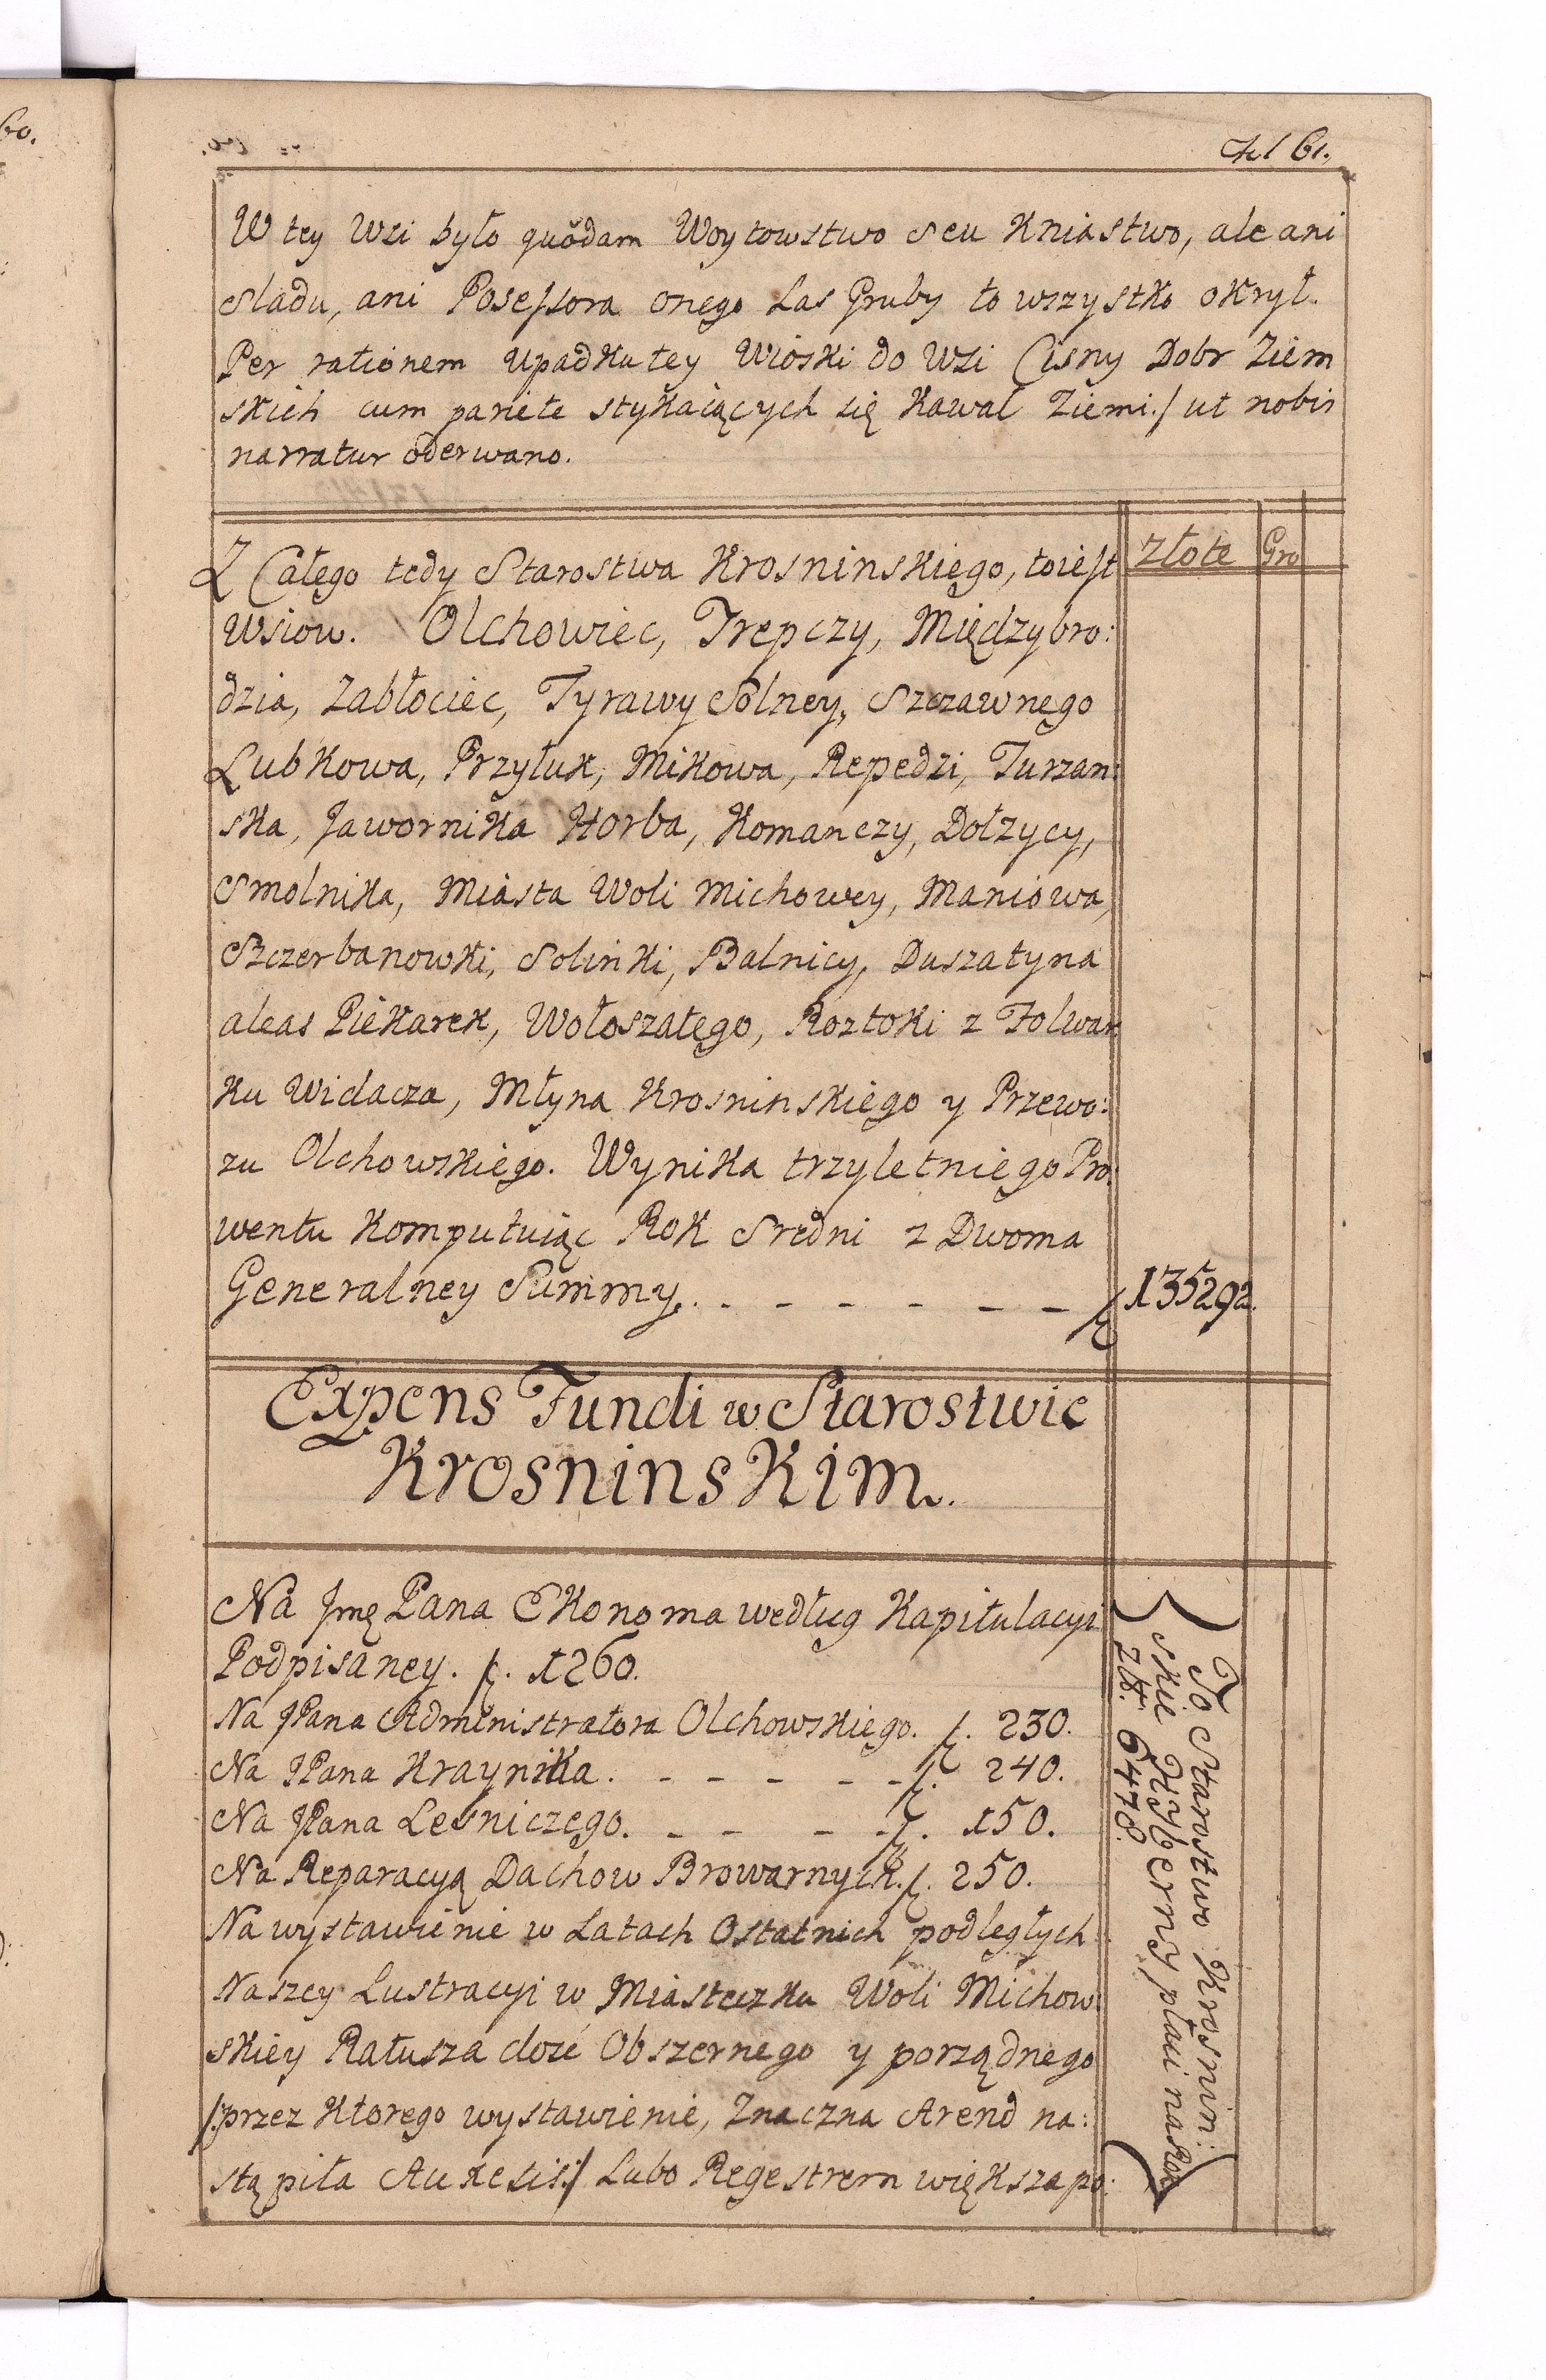 61.
W tey Wsi było quodam Woytowstwo seu Kniastwo, ale ani
sladu, ani Posessora onego Las Gruby to wszystko okrył.
Per rationem upadku tey Wioski do Wsi Cisny Dobr Ziem
skich cum pariete stykaiących się kawał Ziemi./ ut nobis
narratur oderwano.
Złote Gro
Z Całego tedy Starostwa Krosninskiego, toiest
Wsiow. Olchowiec, Trepczy, Międzybro:
dzia, Zabłociec, Tyrawy Solney, Szczawnego
Lubkowa, Przyłuk, Mikowa, Repedzi, Turzan:
ska, Jawornika Horba, Komanczy, Dołzycy,
Smolnika, Miasta Woli Michowey, Maniowa,
Szczerbanowki, Solinki, Balnicy, Duszatyna
aleas Piekarek, Wołoszatego, Roztoki z Folwar
ku Widacza, Młyna Krosninskiego y Przewo:
zu Olchowskiego. Wynika trzyletniego Pro:
wentu komputuiąc Rok Sredni z Dwoma
Generalney Summy. - - - - - - - 135292.
Expens Fundi w Starostwie
Krosninskim.
Na Jmę Pana Ekonoma według Kapitulacyi
Podpisaney. f. 1260.
Na JPana Administratora Olchowskiego. f. 230.
Na JPana Kraynika. - - - - - f. 240.
Na JPana Lesniczego. - - - - f. 150.
Na Reparacyą Dachow Browarnych. f. 250.
Na wystawienie w Latach Ostatnich podległych
Naszey Lustracyi w Miasteczku Woli Michow:
skiey Ratusza dość Obszernego y porządnego
/:przez ktorego wystawienie, Znaczna Arend na:
stąpiła Auxesis:/ Lubo Regestrem większa po:
To Starostwo Krosnin:
skie Hyberny płaci na Rok
zł. 6478.